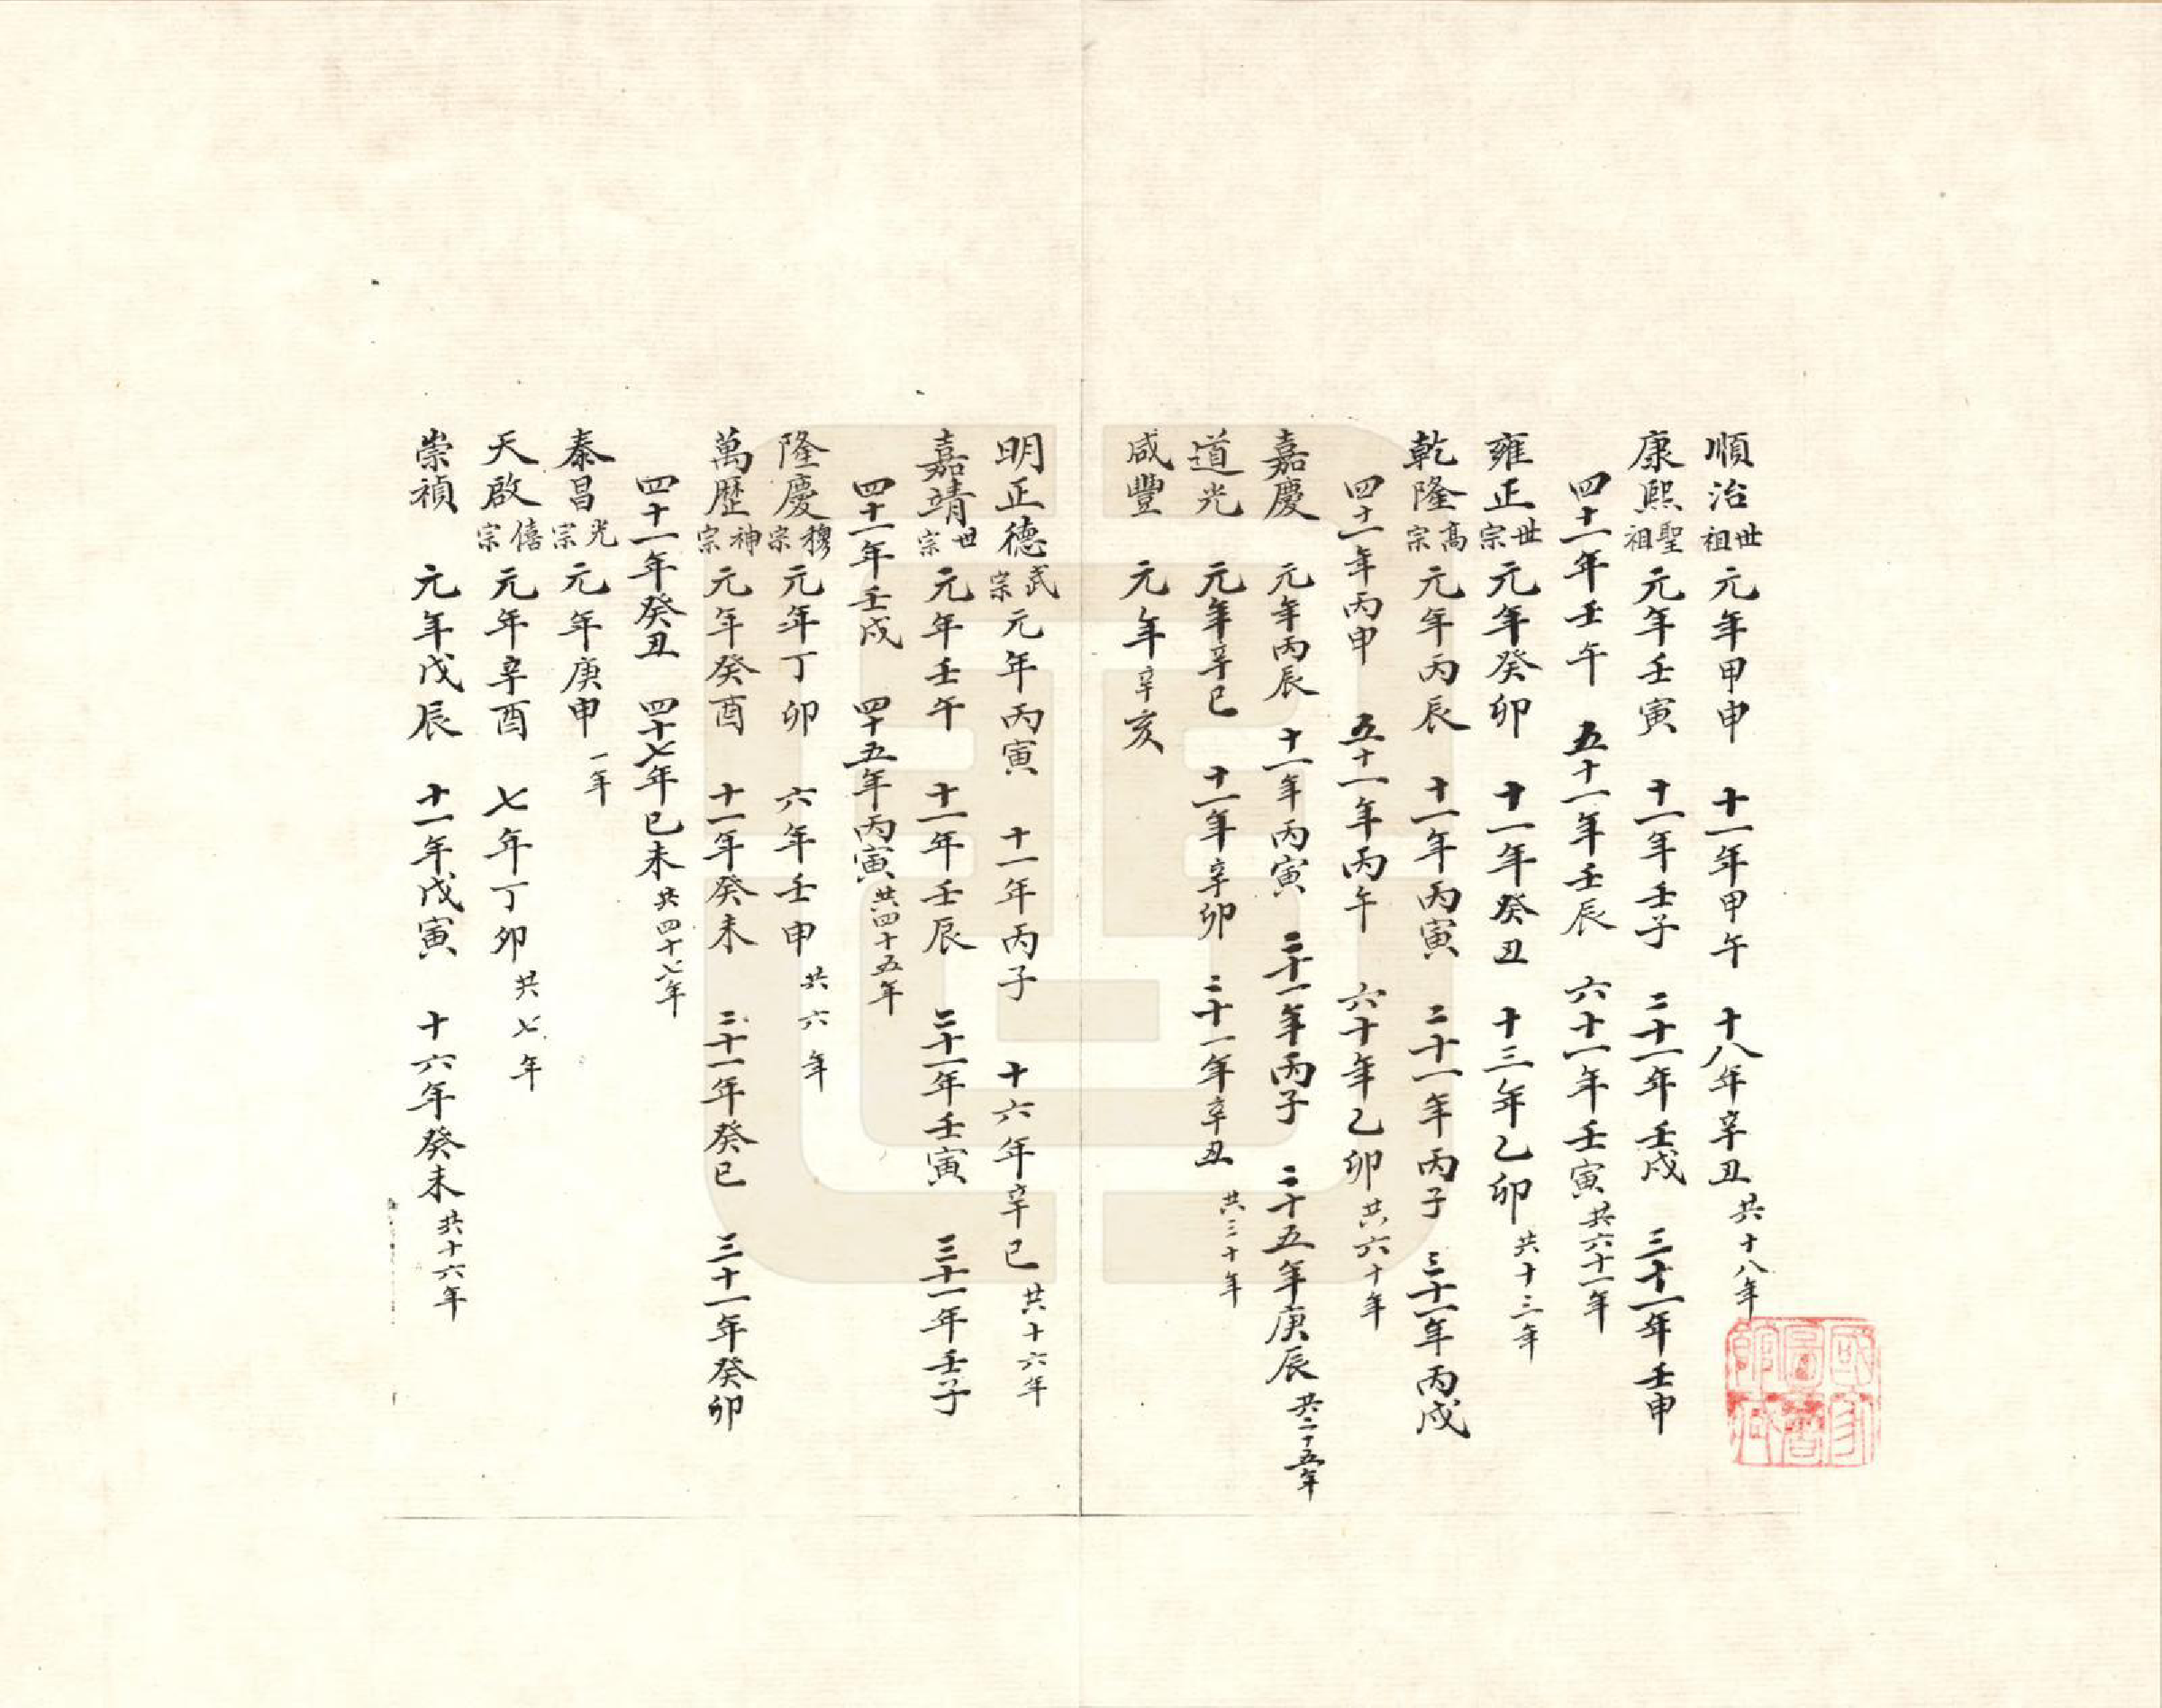 順治世祖元年甲申 十一年甲午 十八年辛丑共十八年
康熙聖祖元年壬寅 十一年壬子 二十一年壬戌 三十一年壬申
四十一年壬午 五十一年壬辰 六十一年壬寅共六十一年
雍正世宗元年癸卯 十一年癸丑 十三年乙卯共十三年
乾隆高宗元年丙辰 十一年丙寅 二十一年丙子 三十一年丙戌
四十一年丙申 五十一年丙午 六十年乙卯共六十年
嘉慶 元年丙辰 十一年丙寅 二十一年丙子 二十五年庚辰共二十五年
道光 元年辛巳 十一年辛卯 二十一年辛丑 共三十年
咸豐 元年辛亥
明正德武宗元年丙寅 十一年丙子 十六年辛巳共十六年
嘉靖世宗元年壬午 十一年壬辰 二十一年壬寅 三十一年壬子
四十一年壬戌 四十五年丙寅共四十五年
隆慶穆宗元年丁卯 六年壬申共六年
萬歷神宗元年癸酉 十一年癸未 二十一年癸巳 三十一年癸卯
四十一年癸丑 四十七年己未共四十七年
泰昌光宗元年庚申一年
天啟僖宗元年辛酉 七年丁卯共七年
崇禎 元年戊辰 十一年戊寅 十六年癸未共十六年
國家圖書館藏